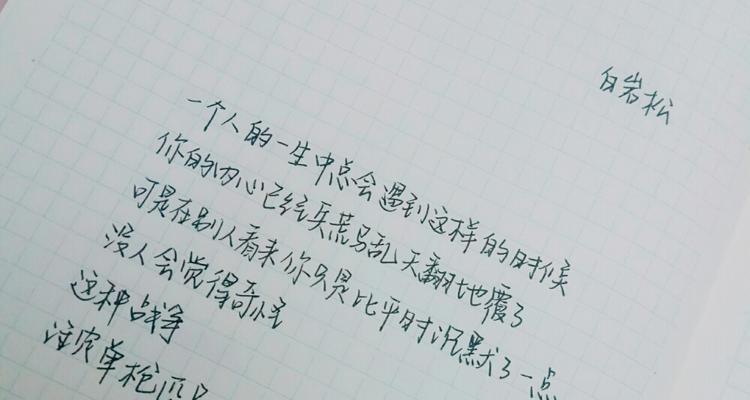 白岩松
一个人的一生中总会遇到这样的时候
你的内心已经兵荒马乱天翻地覆了
可是在别人看来你只是比平时沉默了一点
没人会觉得奇怪
这种战争
注定单枪匹